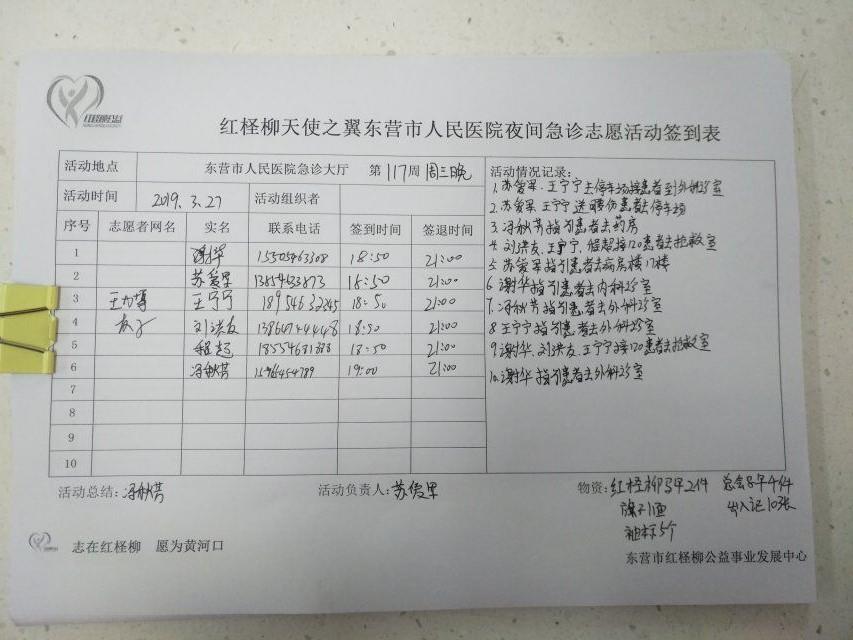 红柽柳公益
红柽柳天使之翼东营市人民医院夜间急诊志愿活动签到表
活动地点 东营市人民医院急诊大厅 第117周 周三晚
活动时间 2019.3.27 活动组织者
序号 志愿者网名 实名 联系电话 签到时间 签退时间
1 谢华 15505463308 18:50 21:00
2 苏爱军 18:50 21:00
3 王宁宁 18:50 21:00
4 刘洪友 18:50 21:00
5 程超 18:50 21:00
6 冯秋芳 19:00 21:00
7
8
9
10
活动情况记录:
1、苏爱军、王宁宁去停车场接患者到外科25室
2、苏爱军、王宁宁送腰伤患者去停车场
3、冯秋芳指引患者去药房
4、刘洪友、王宁宁、程超接120患者去抢救室
5、苏爱军指引患者去病房楼17楼
6、谢华指引患者去内科25室
7、冯秋芳指引患者去外科25室
8、王宁宁指引患者去外科25室
9、谢华、刘洪友、王宁宁接120患者去抢救室
10、谢华指引患者去外科25室
活动总结:冯秋芳 活动负责人:苏爱军 物资:红柽柳马甲2件
旗子1面 出入记10张
袖标5个
志在红柽柳 愿为黄河口
东营市红柽柳公益事业发展中心